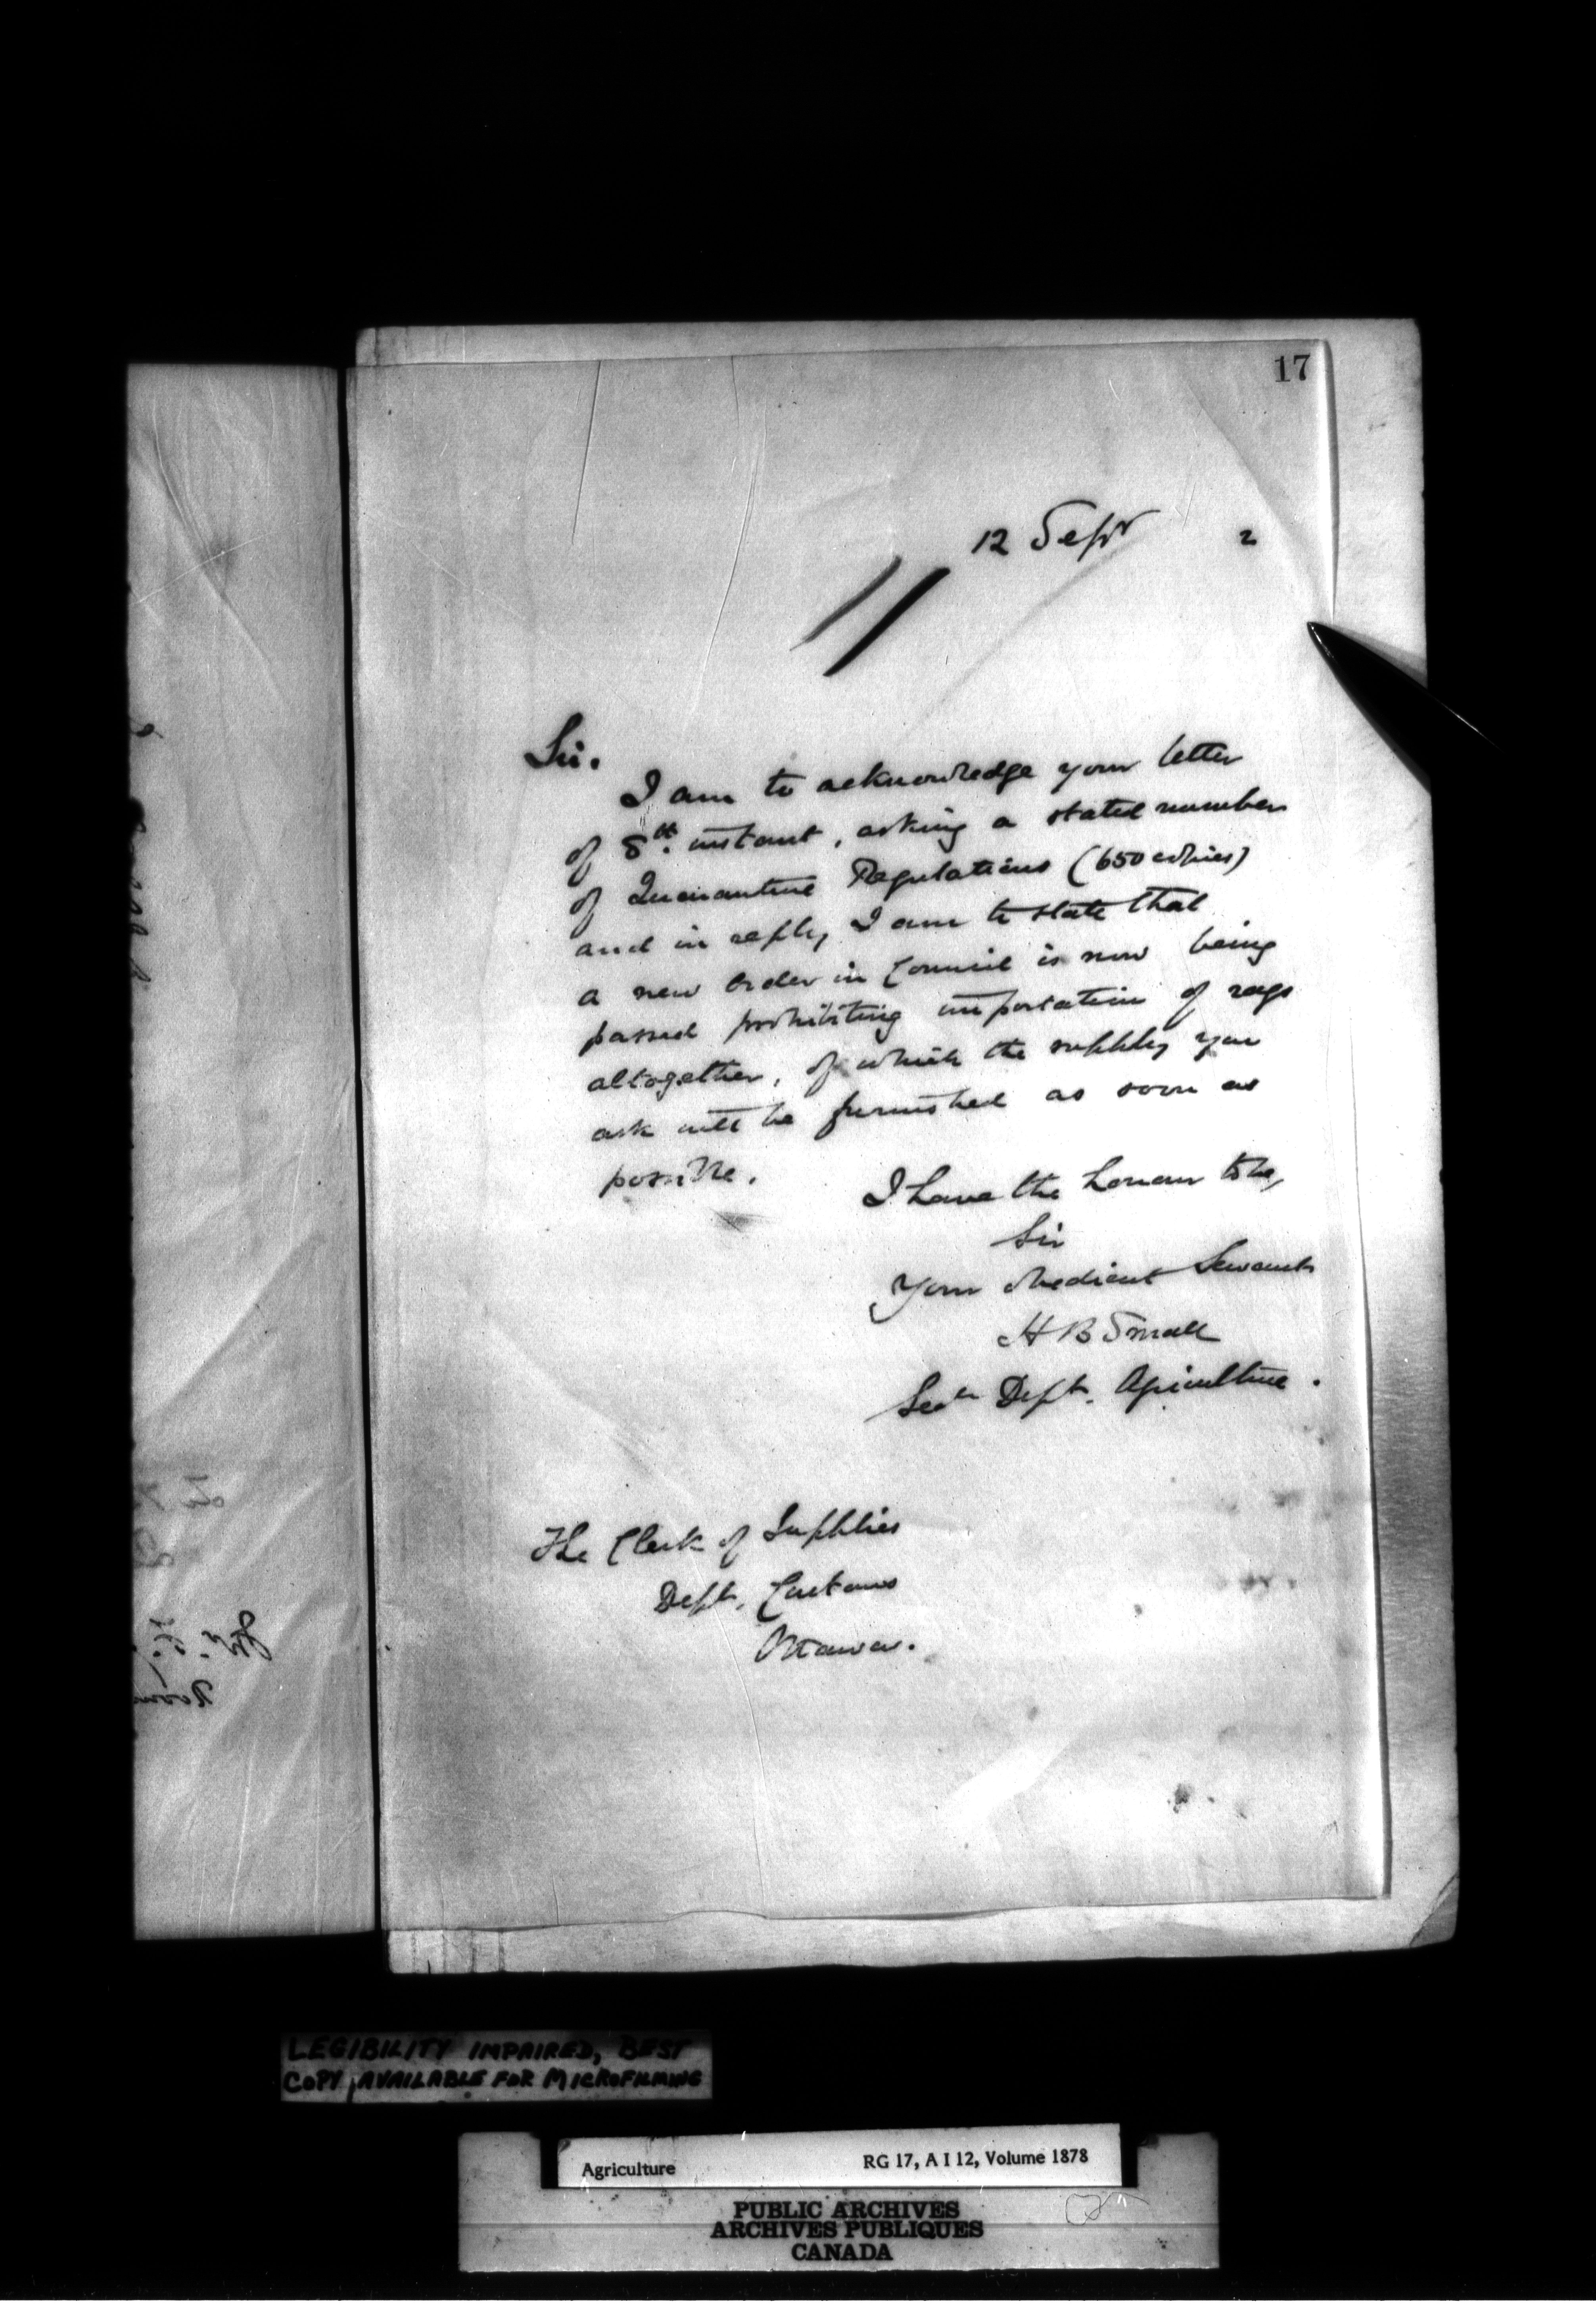 17
12 Sepr 2
Sir.
I am to acknowledge your letter
of 8th. instant, asking a stated number
of Quarantine Regulations (650 copies)
and in reply I am to state that
a new Order in Council is now being
passed prohibiting importation of rags
altogether, of which the supply you
ask will be furnished as soon as
possible.
I have the honour to be,
Sir
Your obedient Servant
H B Small
Secy Dept. Agriculture.
The Clerk of Supplies
Dept. Customs
Ottawa.
LEGIBILITY IMPAIRED, BEST
COPY AVAILABLE FOR MICROFILMING
Agriculture RG 17, A I 12, Volume 1878
PUBLIC ARCHIVES
ARCHIVES PUBLIQUES
CANADA